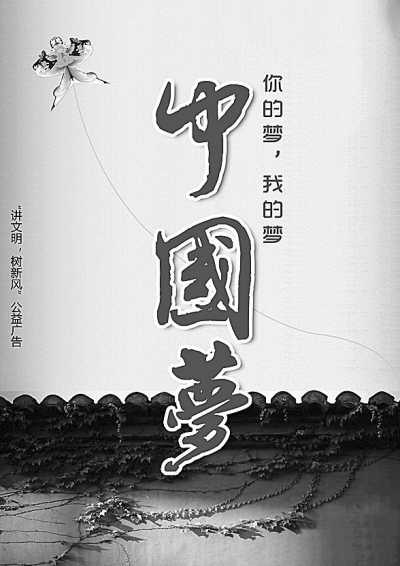 你的梦，我的梦
中國夢
“讲文明，树新风”公益广告